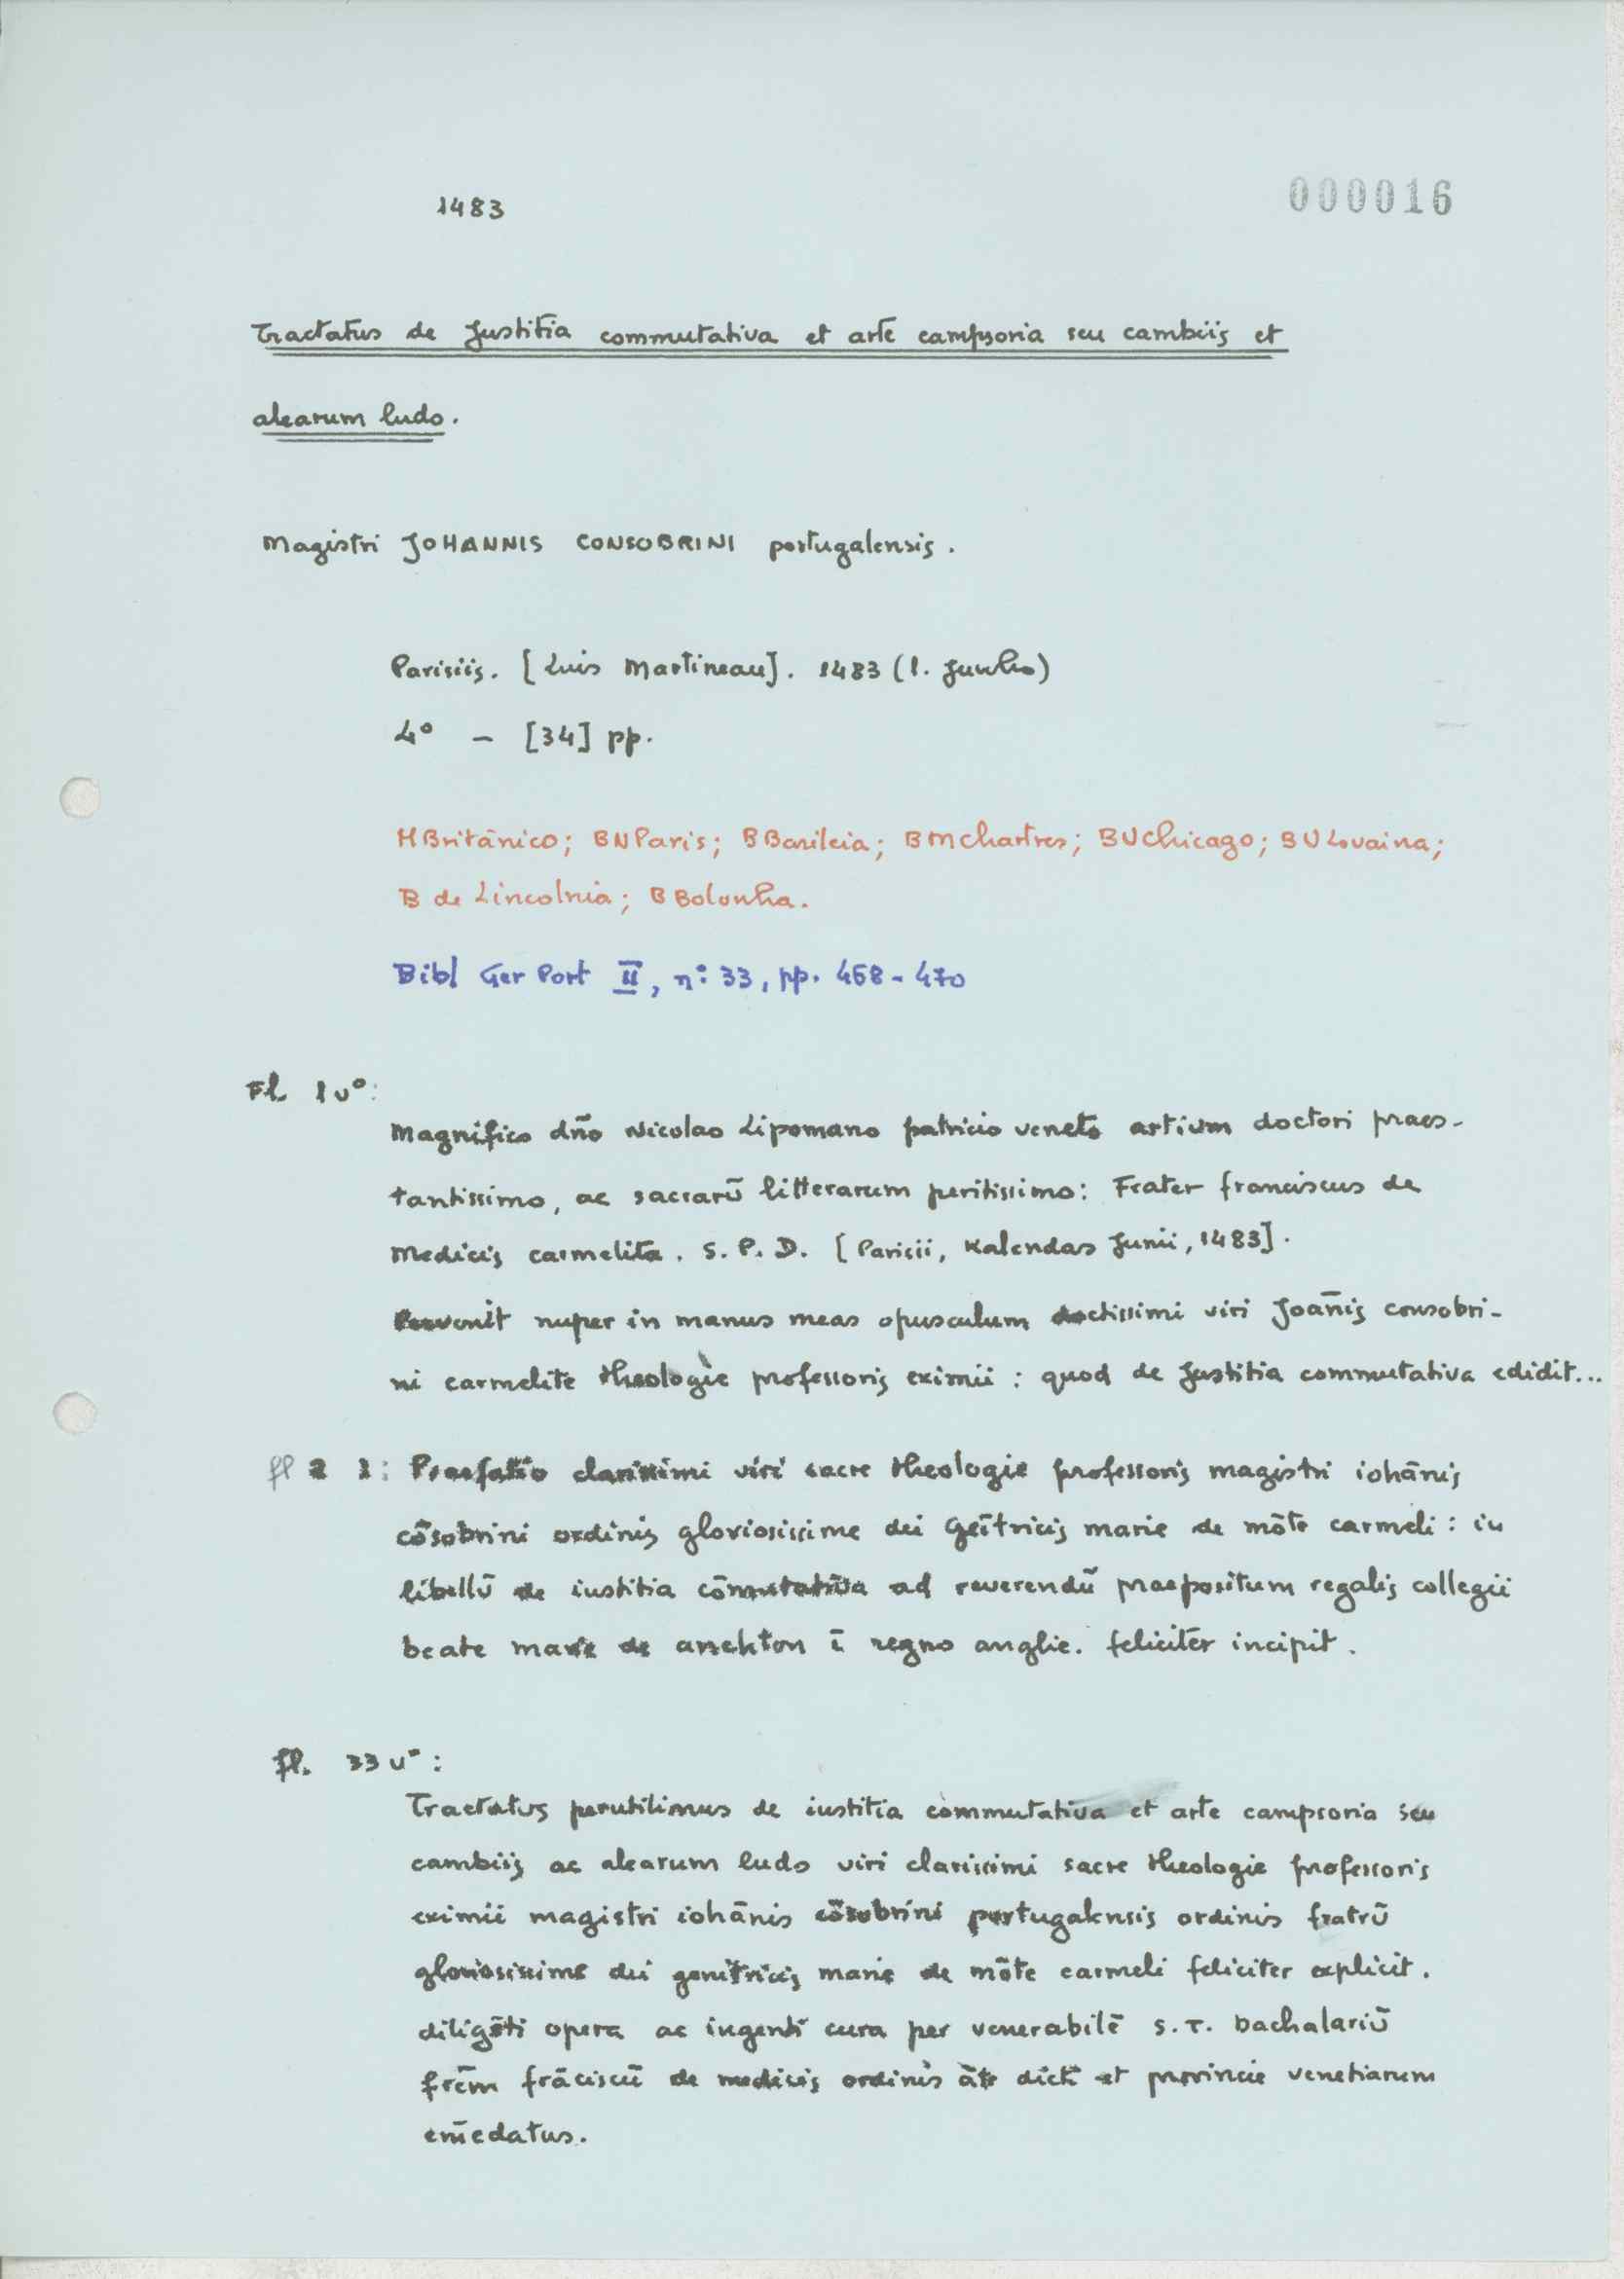 1483
000016
Tractatus de Justitia commutativa et arte campsoria seu cambiis et
alearum ludo.
Magistri JOHANNIS CONSOBRINI portugalensis.
Parisiis. [Luis Martineau]. 1483 (1. Junho)
4º – [34] pp.
MBritânico; BNParis; BBasileia; BMChartres; BUChicago; BULovaina;
B de Lincolnia; BBolonha.
Bibl Ger Port II, nº 33, pp. 468-470
Fl 1vº:
Magnifico dño Nicolao Lipomano patricio veneto artium doctori praes-
tantissimo, ac sacrarū litterarum peritissimo: Frater franciscus de
Medicis carmelita. S. P. D. [Parisii, Kalendas Junii, 1483].
Pervenit nuper in manus meas opusculum doctissimi viri Joāñis consobri-
ni carmelite theologie professoris eximii: quod de Justitia commutativa edidit...
fl 2: Praefatio clarissimi viri sacre theologie professoris magistri iohānis
cōsobrini ordinis gloriosissime dei geītricis marie de mōte carmeli: in
libellū de iustitia cōmutativa ad reverendū praepositum regalis collegii
beate marie de ī regno anglie. feliciter incipit.
fl. 33vº:
Tractatus perutilimus de iustitia commutativa et arte campsoria seu
cambiis ac alearum ludo viri clarissimi sacre theologie professoris
eximii magistri iohānis cōsobrini portugalensis ordinis fratrū
gloriosissime dei genitricis marie de mōte carmeli feliciter explicit.
diligēti opera ac ingenti cura per venerabilē S. T. bachalariū
frēm frāciscū de medicis ordinis āte dicti et provincie venetiarum
emēdatus.